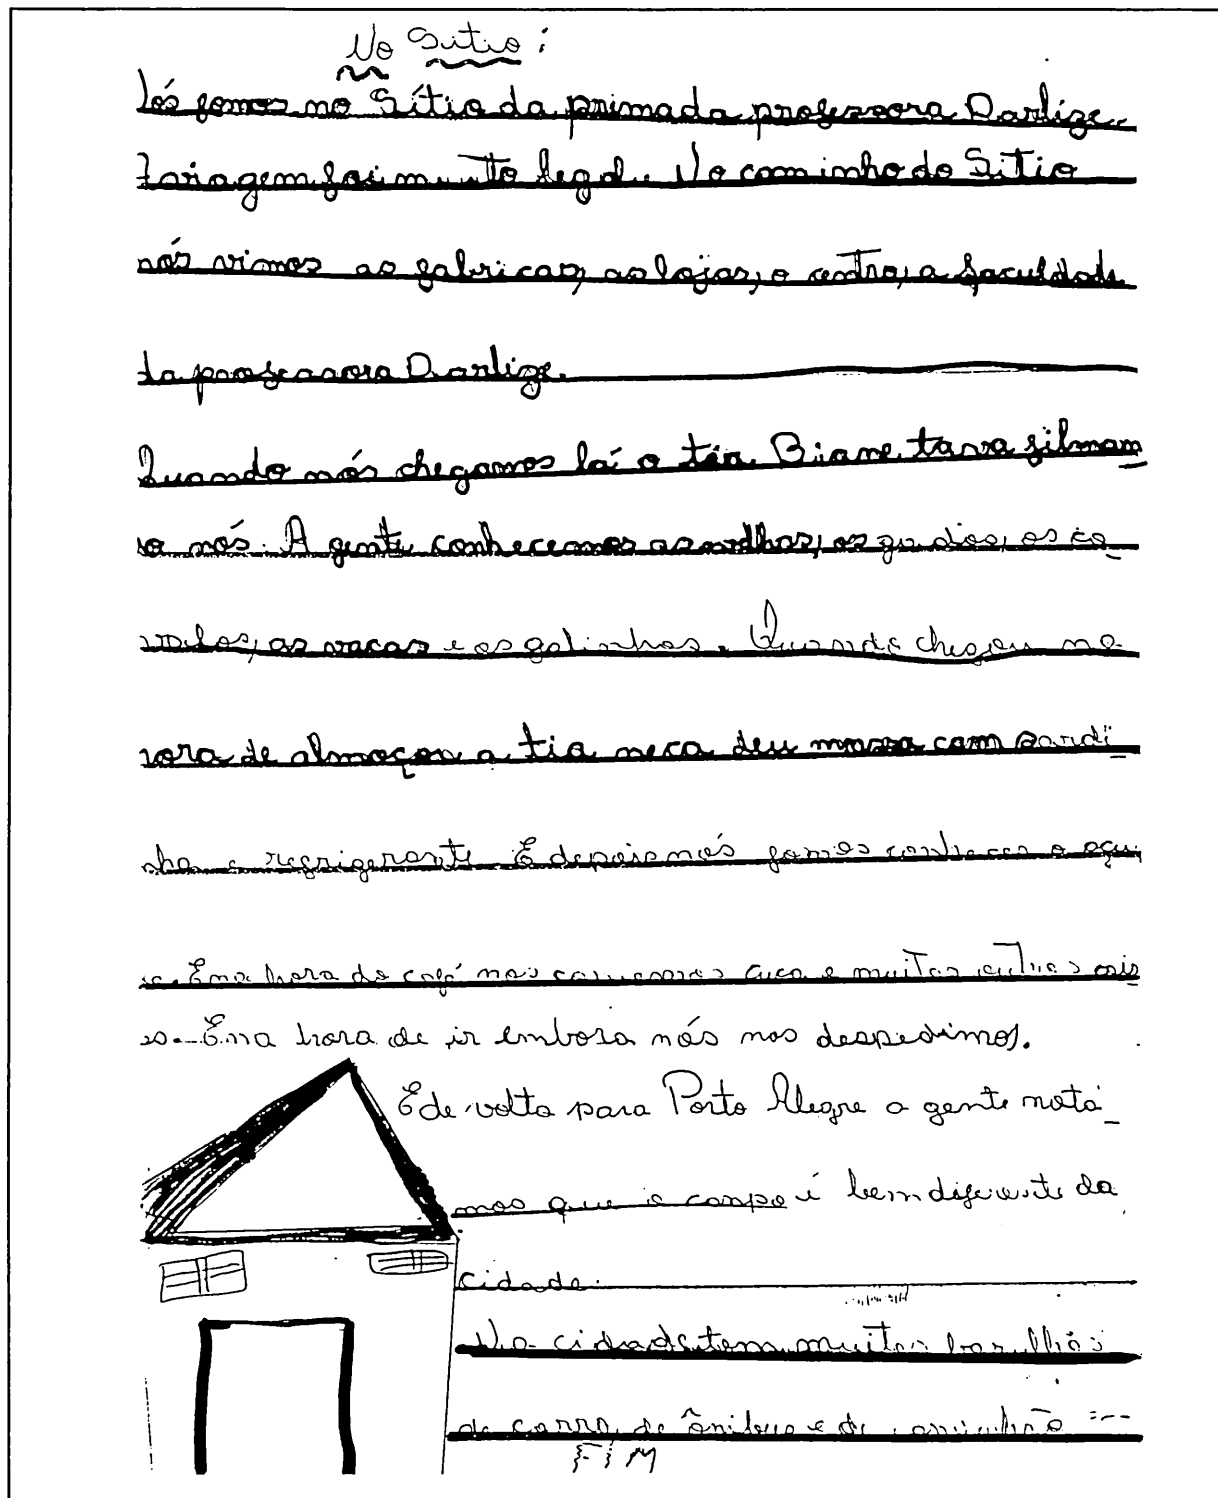 No Sitio:
Nós fomos no Sítio da prima da professora Darlize.
A viagem foi muito legal. No caminho do Sitio
nós vimos as fabricas, as lojas, o centro, a faculdade
da professora Darlize.
Quando nós chegamos lá a tia Biane tava filman
do nós. A gente conhecemos as ovelhas, os os ca-
valos, as vacas e as galinhas. Quando chegou na
hora de almoçar a tia neca deu massa com sardi
nha e refrigerante. E depois nós fomos conhecer o açu
de. E na hora do café nos comemos cuca e muitas outras cois
as. E na hora de ir embora nós nos despedimos.
E de volta para Porto Alegre a gente nota-
mos que o campo é bem diferente da
cidade.
Na cidade tem muitos barulhos
de carro, de ônibus e de caminhão
FIM